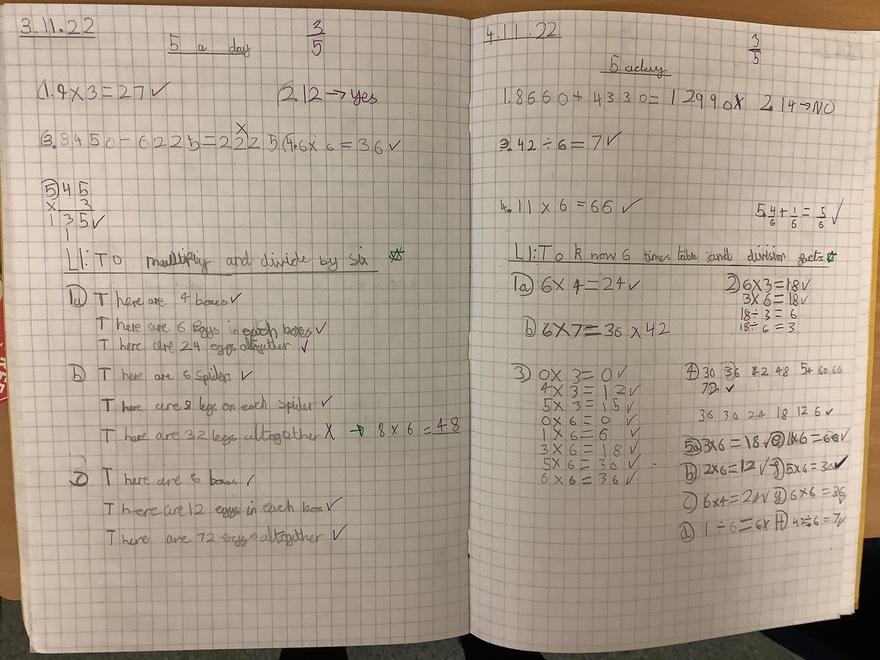 3.11.22
3/5
5 a day
1. 9 x 3 = 27 ✓
2. 12 → yes
3. 8450 - 6225 = 2225 x
4. 6 x 6 = 36 ✓
5 45
x 3
135 ✓
1
LI: To multiply and divide by six
1a) There are 4 boxes ✓
There are 6 eggs in each boxes ✓
There are 24 eggs altogether ✓
b) There are 6 spiders ✓
There are 8 legs on each spider ✓
There are 32 legs altogether x → 8 x 6 = 48
c) There are 6 boxes ✓
There are 12 eggs in each box ✓
There are 72 eggs altogether ✓
4.11.22
3/5
5 aday
1. 8660 + 4330 = 12990 x
2. 14 → NO
3. 42 ÷ 6 = 7 ✓
4. 11 x 6 = 66 ✓
5. 4/6 + 1/6 = 5/6 ✓
LI: To know 6 times table and division facts
1a) 6 x 4 = 24 ✓
b) 6 x 7 = 36 x 42
2) 6 x 3 = 18 ✓
3 x 6 = 18 ✓
18 ÷ 3 = 6
18 ÷ 6 = 3
3) 0 x 3 = 0 ✓
4 x 3 = 12 ✓
5 x 3 = 15 ✓
0 x 6 = 0 ✓
1 x 6 = 6 ✓
3 x 6 = 18 ✓
5 x 6 = 30 ✓
6 x 6 = 36 ✓
4) 30 36 42 48 54 60 66
72 ✓
36 30 24 18 12 6 ✓
5a) 3x6 = 18 ✓
e) 11x6 = 66 ✓
b) 2x6 = 12 ✓
f) 5x6 = 30 ✓
c) 6x4 = 24 ✓
g) 6x6 = 36 ✓
d) 1 ÷ 6 = 6 x
H) 42÷6 = 7 ✓